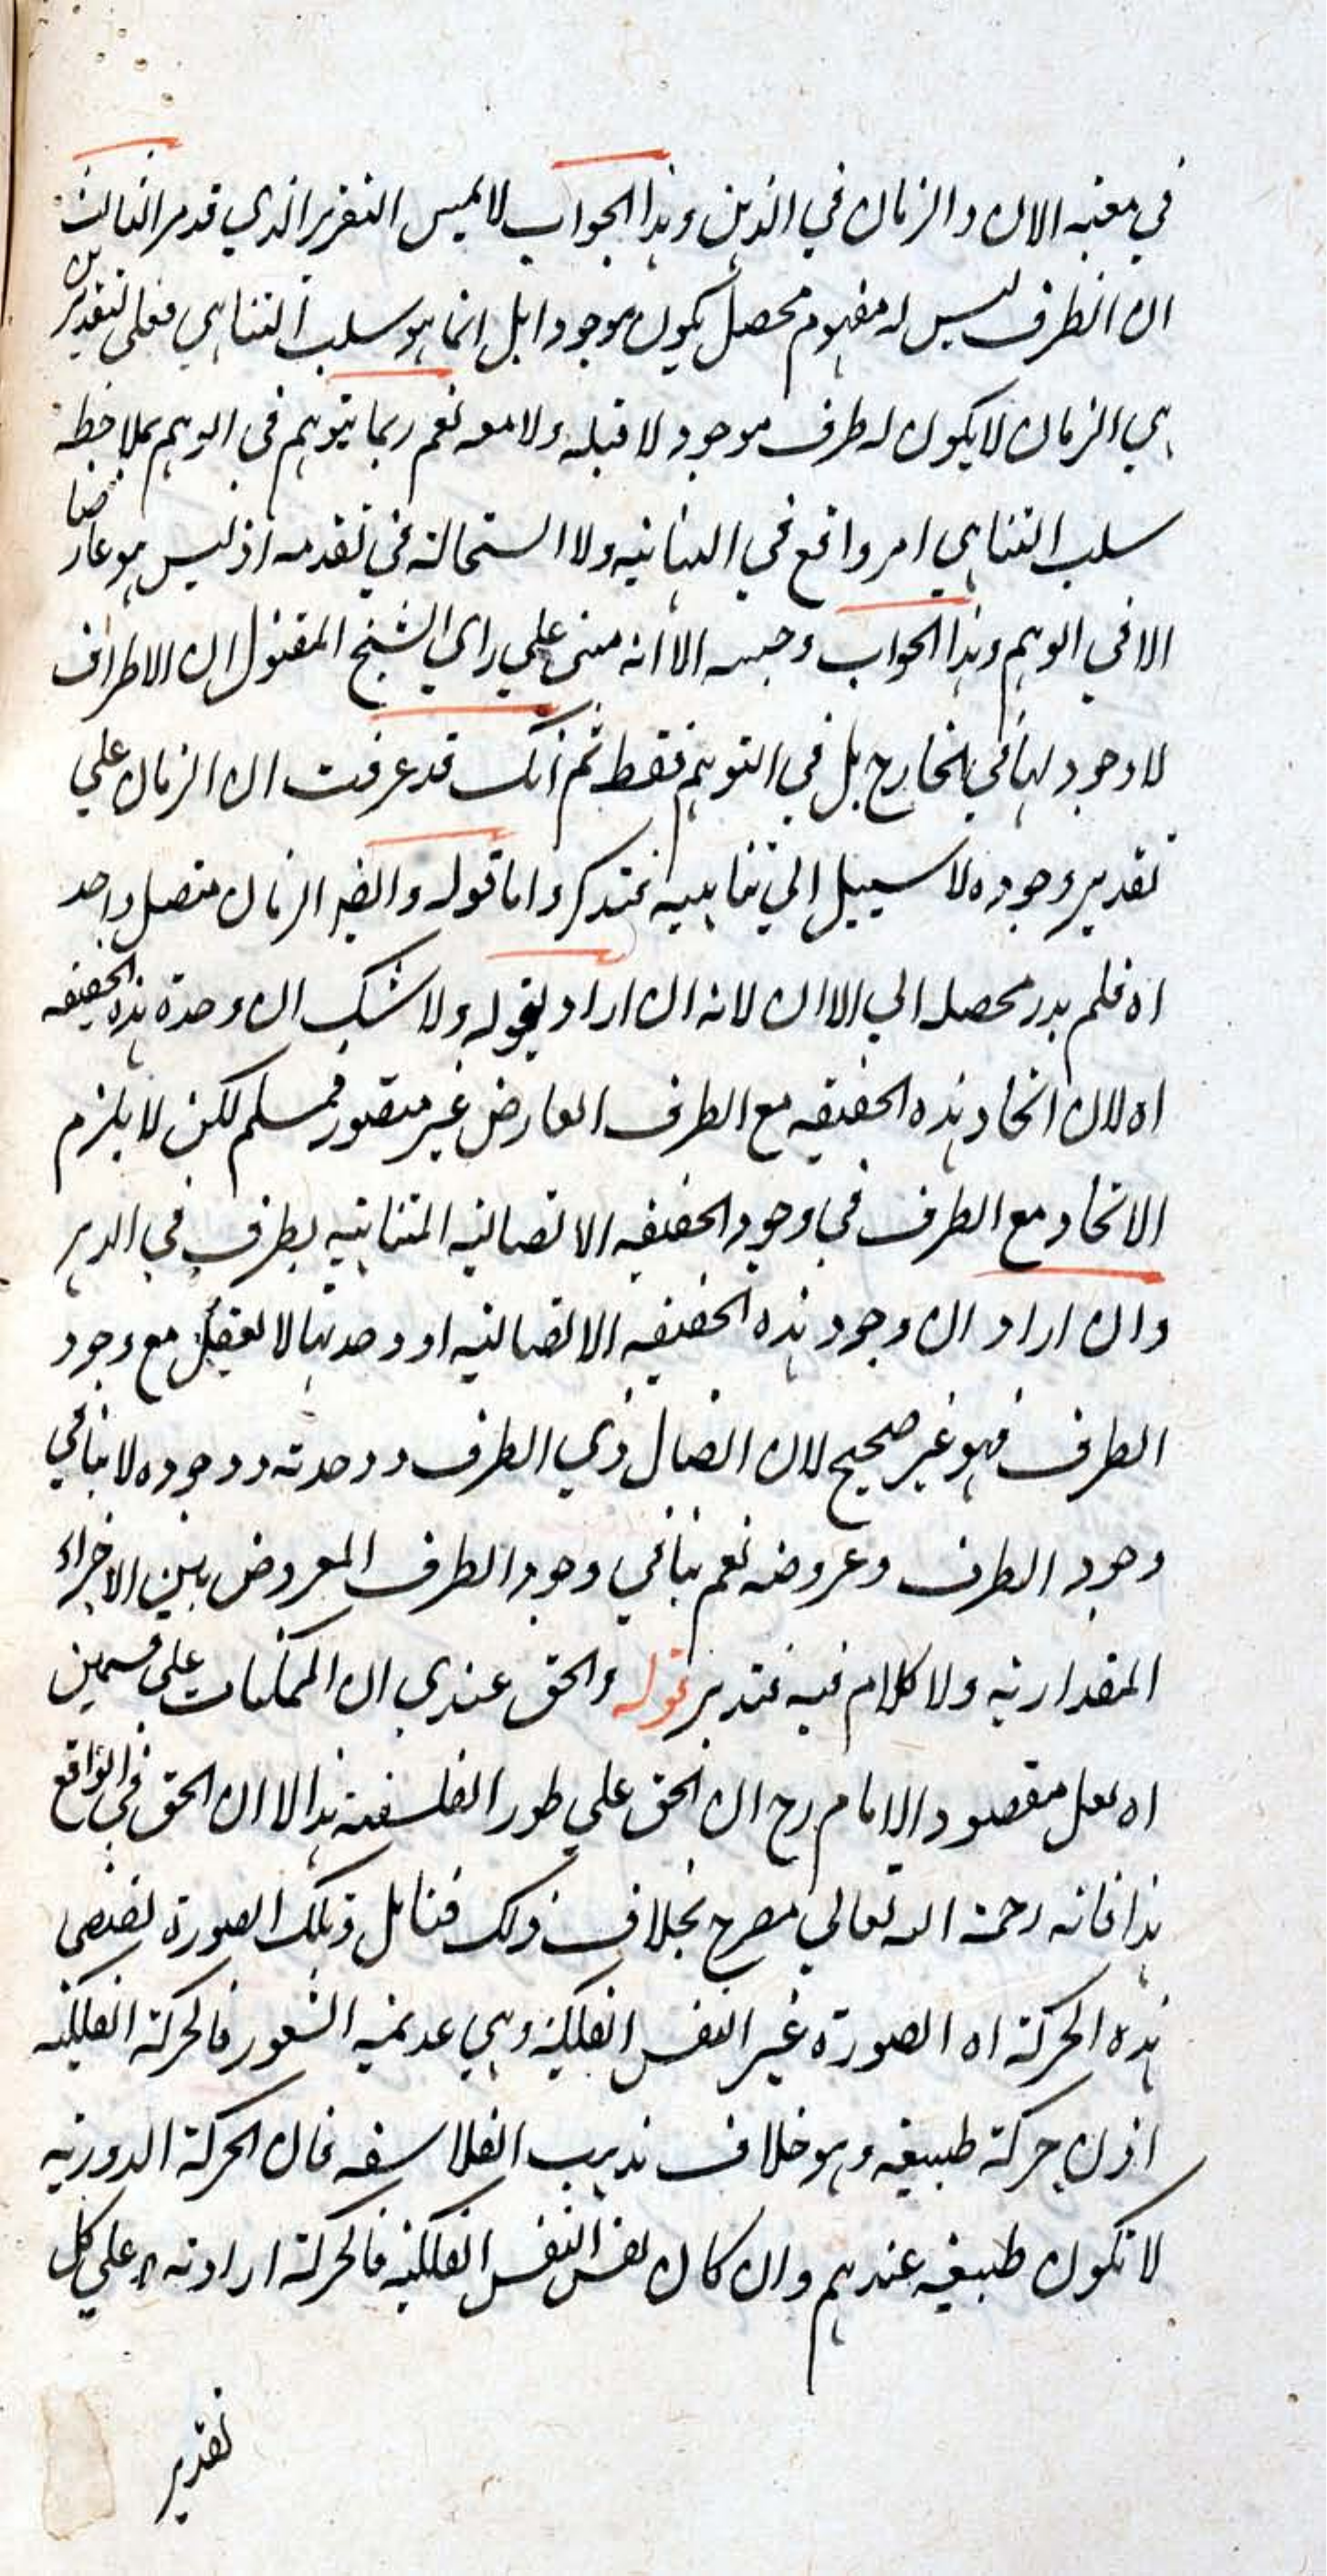 في معية الآن والزمان في الذهن وهذا الجواب لا يمس التقرير الذي قدمر الثالث
ان الطرف ليس له مفهوم محصل يكون موجودا بل انما هو سلب التناهي فعلى تقدير
هي الزمان لا يكون له طرف موجود لا قبله ولا معه نعم ربما يتوهم في الوهم بملاحظة
سلب التناهي امر واقع في النهاية ولا استحالة في تقدمه اذ ليس هو عارضا
الا في الوهم وهذا الجواب وجيه الا انه مبني علي راي الشيخ المقتول ان الاطراف
لا وجود لها في الخارج بل في التوهم فقط ثم انك قد عرفت ان الزمان علي
تقدير وجوده لا سبيل الي تناهيه فتذكر واما قوله وايضا الزمان متصل واحد
اه فلم يدر محصله الي الاان لانه ان اراد بقوله ولا شك ان وحدة هذه الحقيقه
اه لان اتحاد هذه الحقيقه مع الطرف العارض غير متصور فمسلم لكن لا يلزم
الاتحاد مع الطرف في وجود الحقيقه الاتصاليه المتناهيه بطرف في الدهر
وان اراد ان وجود هذه الحقيقه الاتصاليه او وحدتها لا يعقل مع وجود
الطرف فهو غير صحيح لان اتصال ذي الطرف ووحدته ووجوده لا ينافي
وجود الطرف وعروضه نعم ينافي وجود الطرف المعروض بين الاجزاء
المقداريه ولا كلام فيه فتدبر قوله والحق عندي ان الممكنات علي قسمين
اه لعل مقصود الامام رح ان الحق علي طور الفلسفة هذا لا ان الحق في الواقع
هذا فانه رحمة الله تعالي مصرح بخلاف ذلك فتامل وتلك الصورة تقتضي
هذه الحركة اه الصورة غير النفس الفلكية وهي عديمة الشعور فالحركة الفلكيه
اذن حركة طبيعيه وهو خلاف مذهب الفلاسفه فان الحركة الدوريه
لا تكون طبيعيه عندهم وان كان نفس النفس الفلكيه فالحركة اراديه علي كل
تقدير